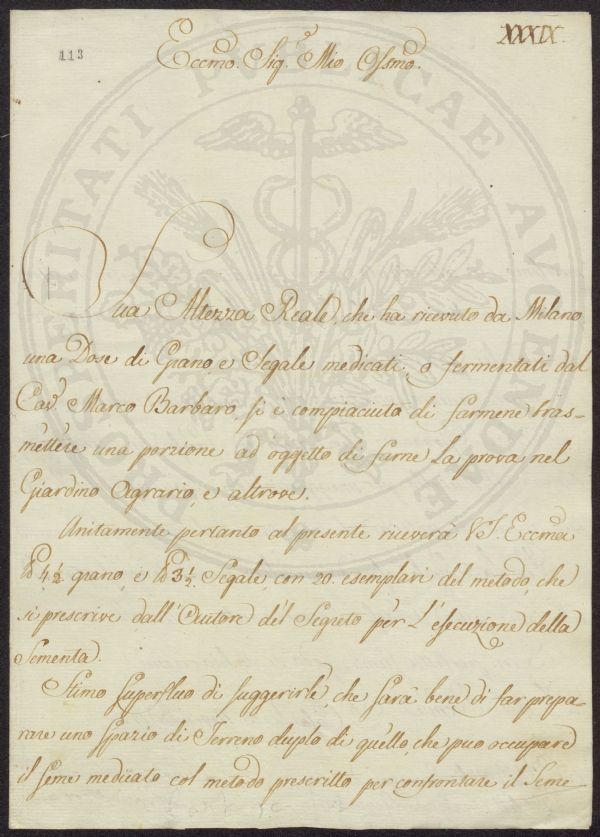 113
XXXIX.
Eccmo. Sigr. Mio Ossmo.
PROSPERITATI PVBLICAE AVGENDAE
Sua Altezza Reale, che ha ricevuto da Milano
una Dose di Grano e Segale medicati, o fermentati dal
Cavr. Marco Barbaro, si è compiaciuta di farmene tras-
mettere una porzione ad oggetto di farne la prova nel
Giardino Agrario, e altrove.
Unitamente pertanto al presente riceverà VS. Eccma
lb 4 1/2 grano, e lb 3 1/2 Segale, con 20. esemplari del metodo, che
si prescrive dall'Autore del Segreto per l'esecuzione della
Sementa.
Stimo superfluo di suggerirle, che sarà bene di far prepa-
rare uno spazio di Terreno duplo di quello, che può occupare
il seme medicato col metodo prescritto per confrontare il Seme